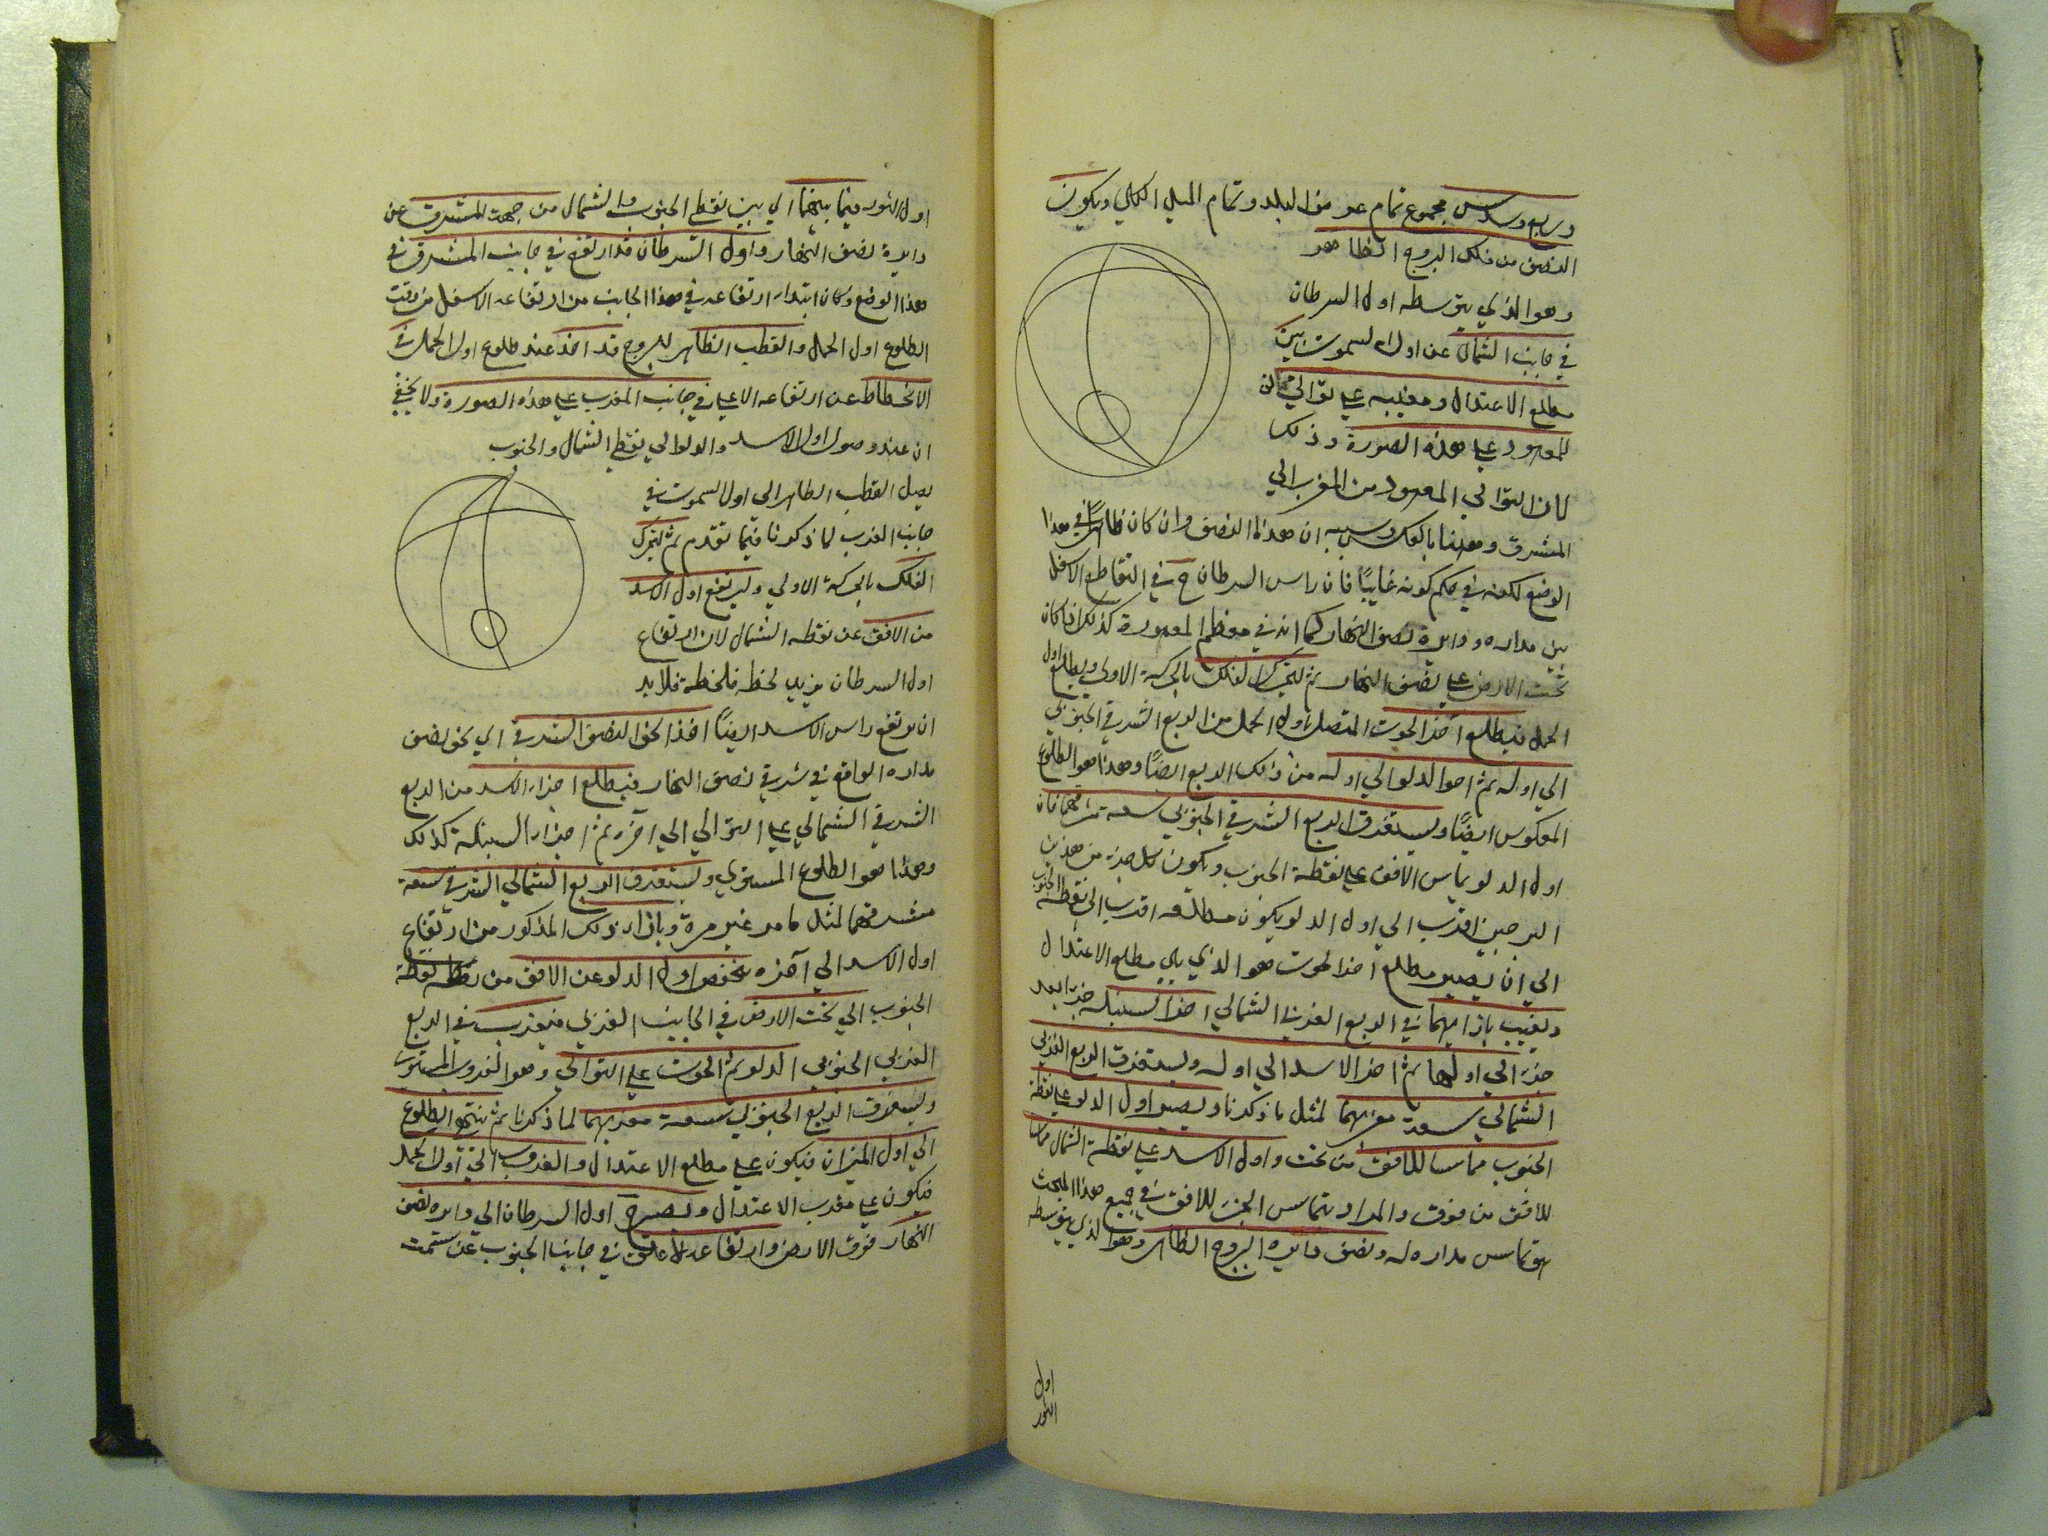 وربع وسدس مجموع تمام عرض البلد وتمام الميل الكلي ويكون
النصف من فلك البروج الظاهر
وهو الذي يتوسطه اول السرطان
في جانب الشمال عن اول السموت بين
مطلع الاعتدال ومغيبه على توالي
المعهود على هذه الصورة وذلك
لان التوالي المعهود من المغرب الي
المشرق وههنا بالعكس وسببه ان هذا النصف وان كان ظاهرًا في هذا
الوضع لكنه في حكم كونه غايبًا فان راس السرطان ح في التقاطع الاسفل
بين مداره ودايرة نصف النهار كما انه في معظم المعمورة كذلك اذا كان
تحت الارض على نصف النهار ثم ليتحرك الفلك بالحركة الاولي ويطلع اول
الحمل فيطلع آخر الحوت المتصل باول الحمل من الربع الشرقي الجنوبي
الي اوله ثم اجزا الدلو الي اوله من ذلك الربع ايضًا وهذا هو الطلوع
المعكوس ايضًا ويستغرق الربع الشرقي الجنوبي سعة مشرقهما فان
اول الدلو يماس الافق على نقطة الجنوب ويكون كل جزء من هذين
البرجين اقرب الي اول الدلو يكون مطلعه اقرب الي نقطة الجنوب
الي ان يصير مطلع آخر الحوت هو الذي يلي مطلع الاعتدال
ويغيب بازايهما في الربع الغربي الشمالي آخر السنبلة جزءا بعد
جزء الي اولها ثم آخر الاسد الي اوله ويستغرق الربع الغربي
الشمالي سعة مغربهما لمثل ما ذكرنا ويصير اول الدلو على نقطة
الجنوب مماسا للافق من تحت واول الاسد على نقطة الشمال مماسا
للافق من فوق والمراد بتماس الجزء للافق في جميع هذا المبحث
هو تماس مداره له ونصف دايره البروج الظاهر وهو الذي يتوسطه
اول
الثور
اول الثور فيما بينهما الي بين نقطتي الجنوب والشمال من جهت المشرق عن
دايرة نصف النهار واول السرطان قد ارتفع في جانب المشرق في
هذا الوضع وكان ابتدا ارتفاعه في هذا الجانب من ارتفاعه الاسفل من وقت
الطلوع اول الحمل والقطب الظاهر للبروج قد اخذ عند طلوع اول الحمل في
الانحطاط عن ارتفاعه الاعلي في جانب المغرب على هذه الصورة ولا يخفي
ان عند وصول اول الاسد والدلو الي نقطتي الشمال والجنوب
يصل القطب الظاهر الي اول السموت في
جانب الغرب لما ذكرنا فيما تقدم ثم ليتحرك
الفلك بالحركة الاولي وليرتفع اول الاسد
من الافق عن نقطه الشمال لان ارتفاع
اول السرطان يزيد لحظه فلحظة فلا بد
ان يرتفع راس الاسد ايضًا اخذا نحو النصف الشرقي اي نحو نصف
مداره الواقع في شرقي نصف النهار فيطلع اجزاء الاسد من الربع
الشرقي الشمالي على التوالي الي آخره ثم اجزاء السنبلة كذلك
وهذا هو الطلوع المستوي ويستغرق الربع الشمالي الشرقي سعة
مشرقهما لمثل ما مر غير مرة وبازاء ذلك المذكور من ارتفاع
اول الاسد الي آخره ينخفض اول الدلو عن الافق من نقطة
الجنوب الي تحت الارض في الجانب الغربي فيغرب في الربع
الغربي الجنوبي الدلو ثم الحوت على التوالي وهو الغروب المستوي
ويستغرق الربع الجنوبي سعة مغربهما لما ذكرنا ثم ينتهي الطلوع
الي اول الميزان فيكون على مطلع الاعتدال والغروب الي اول الحمل
فيكون على مغرب الاعتدال ويصير ح اول السرطان الي دايره نصف
النهار فوق الارض وارتفاعه الاعلي في جانب الجنوب عن سمت